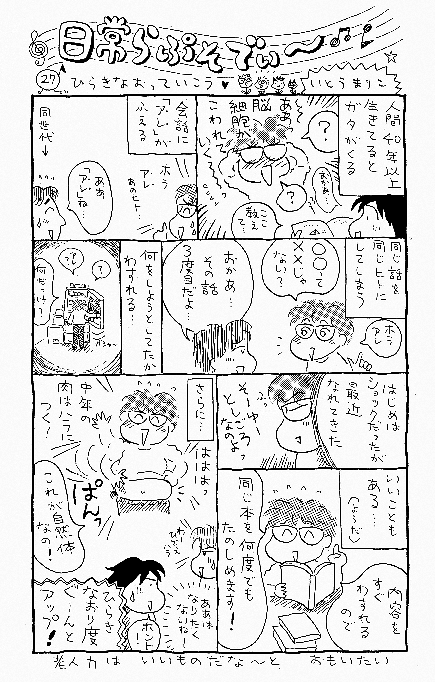 日常らぷそでぃ～
27
ひらきなおっていこう♥
いとうまりこ
人間40年以上
生きてると
ガタがくる
ああ
脳
細胞が
こわれて
いく…
?
?
ああっ
ここ
教えて
会話に
「アレ」が
ふえる
ホラ
アレ
あのヒト…
ああ
アレね…
同世代→
同じ話を
同じヒトに
してしまう
ホラ
アレ
○○って
××じゃ
ない?
おかあ…
その話
3度目だよ…
何をしようとしてたか
わすれる…
って?
?
何だっけ?
はじめは
ショックだったが
最近
なれてきた
ふっ
そーゆー
としごろ
なのよ
いいことも
ある…
(ようだ)
内容を
すぐ
わすれる
ので
同じ本を何度でも
たのしめます!
さらに…
中年の
肉はハラに
つく!
ははは
ぱんっ
これが自然体
なの!
ああは
なりたく
ないね!
ホント!
ひらき
なおり度
ぐーんと
アップ!
老人力は いいものだな～と おもいたい